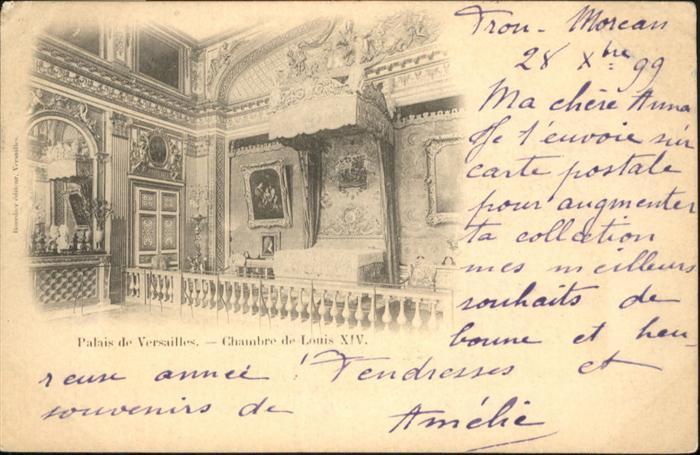 Trou-Moreau
28 Xbre 99
Ma chère Anna
Je t'envoie sur
carte postale
pour augmenter
ta collection
mes meilleurs
souhaits de
bonne et heu-
reuse année ! Tendresses et
souvenirs de Amélie
Palais de Versailles. — Chambre de Louis XIV.
éditeur, Versailles.